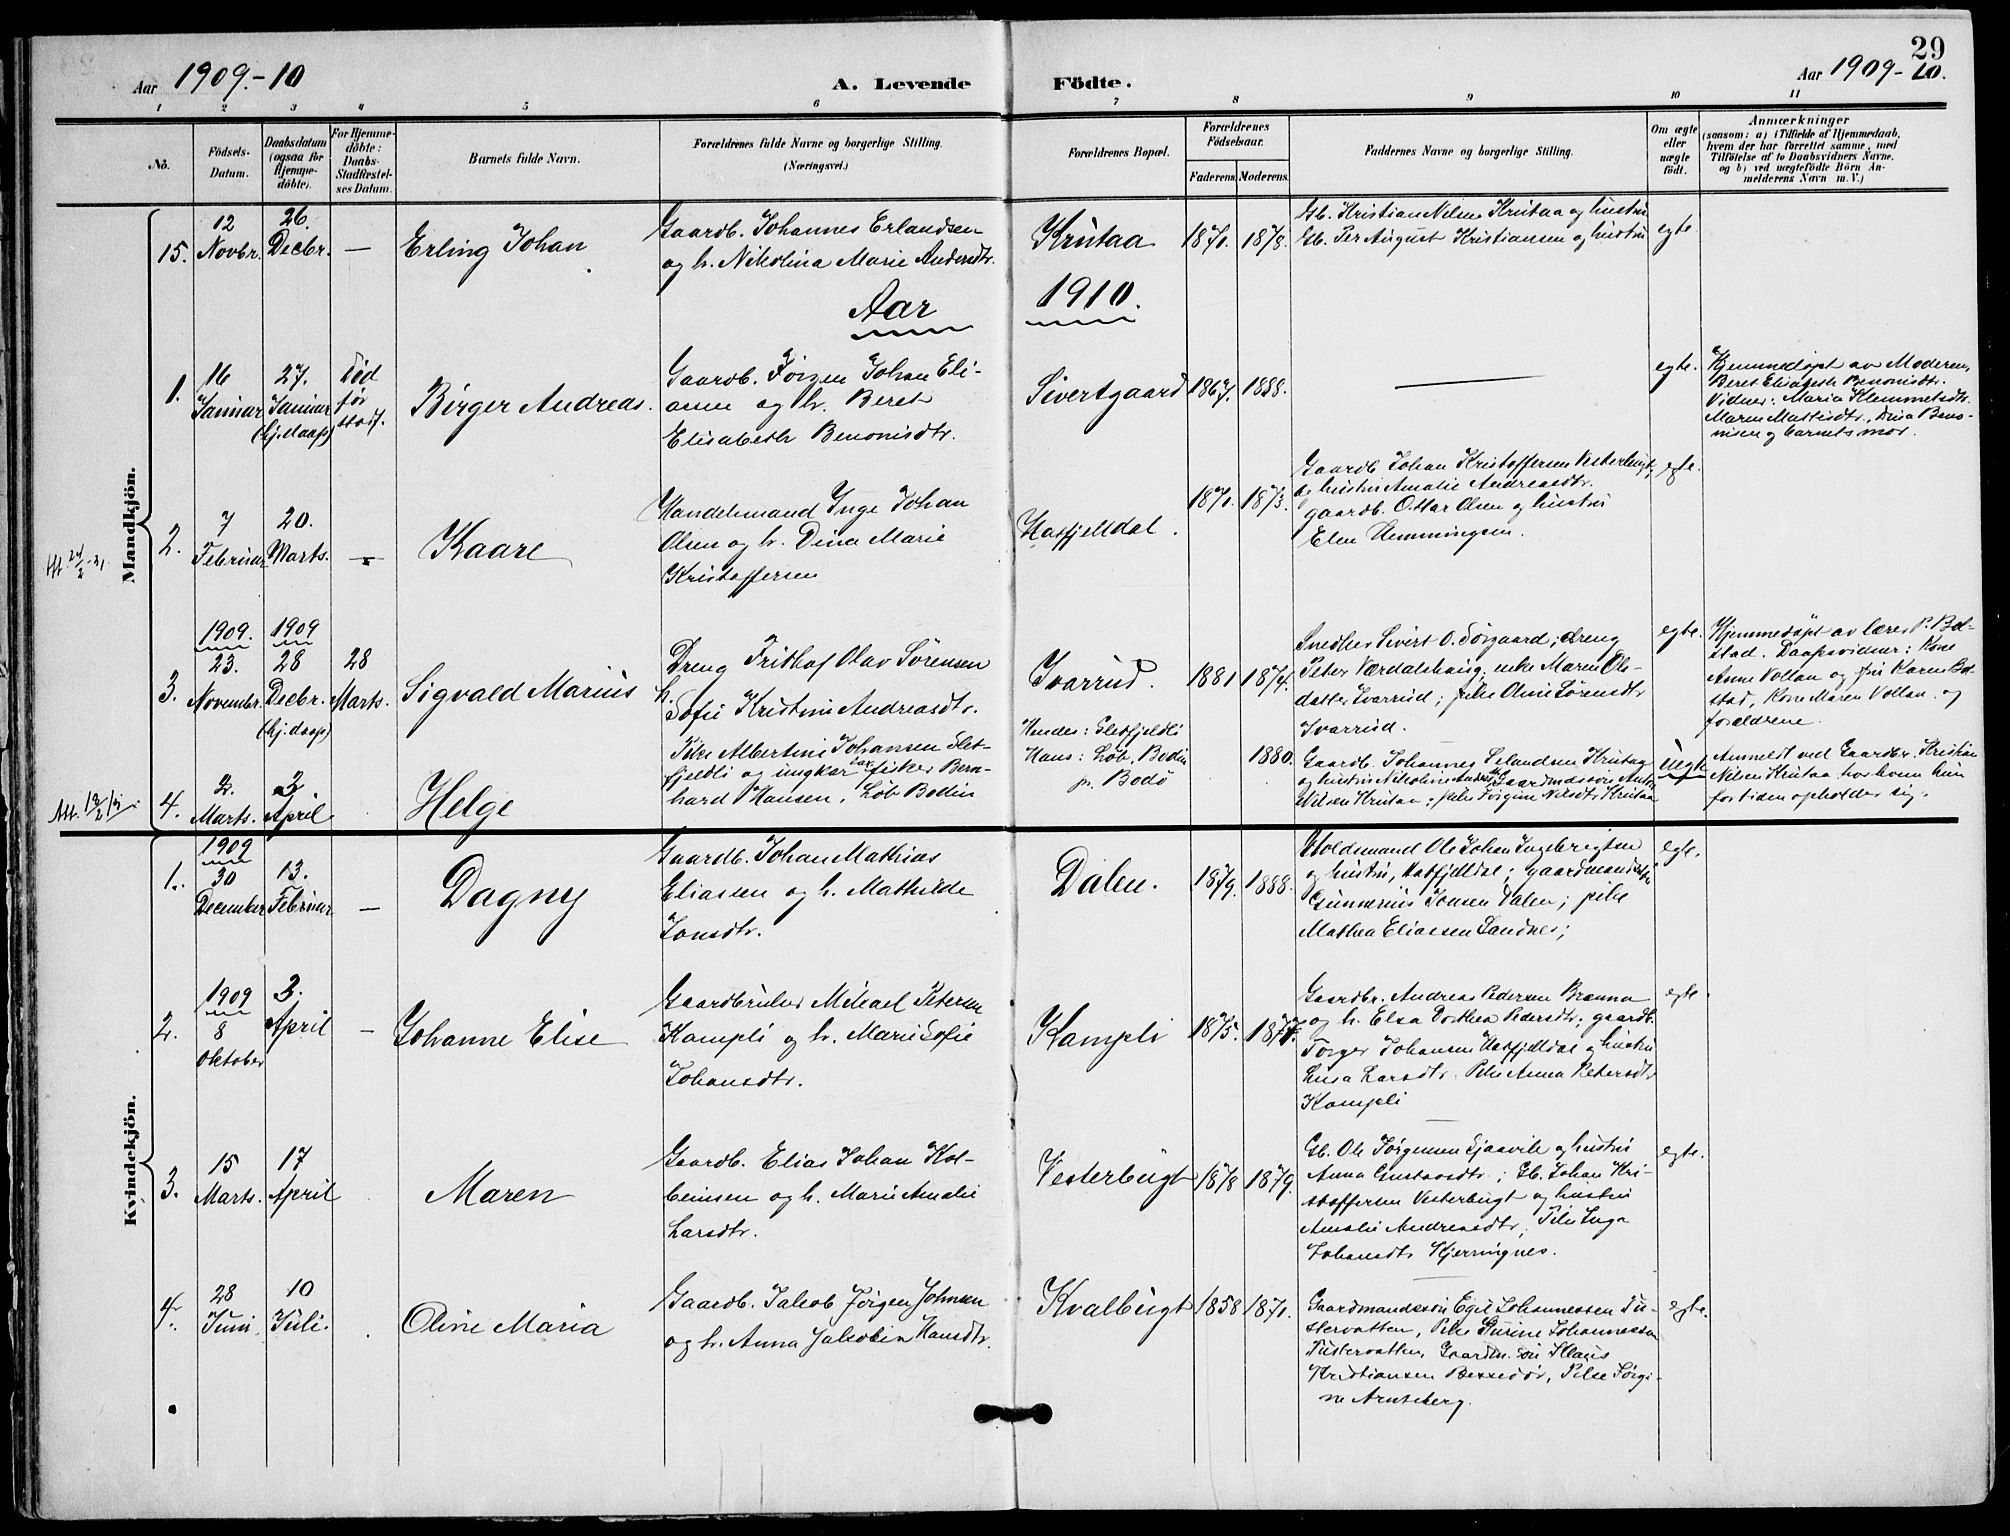 29
Aar 1909.-10
A. Levende
Fødte.
Aar 1909-10.
1 2 3 4 5 6 7 8 9 10 11
No.
Fødsels-
Datum.
Daabsdatum
(ogsaa for
Hjemme-
døbte).
For Hjemme-
døbte:
Daabs-
Stadfæstel-
ses Datum.
Barnets fulde Navn.
Forældrenes fulde Navne og borgerlige Stilling.
(Næringsvei.)
Forældrenes Bopæl.
Forældrenes
Fødselsaar.
Faderens. Moderens.
Faddernes Navne og borgerlige Stilling.
Om ægte
eller
uægte
født.
Anmærkninger
(saasom: a) i Tilfælde af Hjemmedaab,
hvem der har forrettet samme, med
Tilføielse af to Daabsvidners Navne,
og b) ved uægtefødte Børn An-
melderens Navn m. V.)
Mandkjøn.
15.
12
Novbr.
26.
Decbr.
—
Erling Johan
Gaardb. Johannes Erlandsen
og h. Nikolina Marie Andersdtr.
Krutaa
1871. 1878.
Gb. Kristian Nilsen Krutaa og hustru
Gb. Per August Kristiansen og hustru
egte
Aar 1910.
1.
16
Januar
27.
Januar
(hj.daap)
død
før
stadf.
Birger Andreas.
Gaardb. Jørgen Johan Eli-
asen og h. Beret
Elisabeth Benonisdtr.
Sivertgaard
1867. 1888.
egte.
Hjemmedøpt av Moderen,
Beret Elisabeth Benonisdtr.
Vidner: Maria Klemmetsdtr.
Maren Mattisdtr., Dina Beno-
nisen og barnets mor.
2.
7
Februar
20.
Marts.
—
Kaare
Handelsmand Inge Johan
Olsen og h. Dina Marie
Kristoffersen
Hatfjelldal.
1871. 1873.
Gaardb. Johan Kristoffersen Vesterbugt,
og hustru Amalie Andreasdtr.
gaardb. Ottar Olsen og hustru
Elen Hemmingsen.
egte.
3.
1909.
23.
Novembr.
1909
28
Decbr.
(hj.daap)
28
Marts.
Sigvald Marius
Dreng Fridtjof Olav Sørensen
h.
Sofie Kristine Andreasdtr.
Ivarrud.
1881 1874.
Snedker Sivert O. Sørgaard; dreng
Peter Værdalshaug, enke Maren Ole-
datter Ivarrud; pike Oline Sørensdtr
Ivarrud.
egte.
Hjemmedøpt av lærer P. Bol-
stad. Daapsvidner: Kone
Anne Vollan og fru Karen Bol-
stad, Kone Maren Vollan. og
forældrene.
4.
2.
Marts.
3
April
Helge
Pike Albertine Johansen Slet-
fjeldli og ungkar fisker Bern-
hard Hansen, Løb Bodin
Hendes: Sletfjeldli
Hans: Løb, Bodin
pr. Bodø
1880.
Gaardb. Johannes Erlandsen Krutaa
og hustru Nikoline Andersdtr Gaardmandssøn Anton
Nilsen Krutaa; pike Jørgine Nilsdtr Krutaa
Uegte
Anmeldt ved Gaardbr. Kristian
Nilsen Krutaa hos hvem hun
for tiden opholder sig.
Kvindekjøn.
1.
1909
30
December
13.
Februar
—
Dagny
Gaardb. Johan Mathias
Eliassen og h. Mathilde
Jonsdtr.
Dalen.
1879. 1888.
Holdsmand Ole Johan Ingebrigtsen
og hustru, Hatfjelldal; gaardmandssøn
Gunnerius Jonsen Dalen; pike
Mathea Eliassen Sandnes;
egte.
2.
1909
8
Oktober
3.
April
—
Johanne Elise
Gaardbruker Mikael Petersen
Kampli og h. Marie Sofie
Johansdtr.
Kampli
1875.
Gaardbr. Andreas Pedersen Brænna
og h. Elsa Dorthea Pedersdtr; gaardb.
Torger Johansen Hatfjelldal og hustru
Lusa Larsdtr. Pike Anna Petersdtr
Kampli
egte.
3.
15
Marts.
17
April
Maren
Gaardb. Elias Johan Kol-
beinsen og h. Marie Amalie
Larsdtr.
Vesterbugt
1878 1879.
Gb. Ole Jørgensen Sjaavik og hustru
Anna Gustavsdtr.; Gb. Johan Kri-
stoffersen Vesterbugt og hustru
Amalie Andreasdtr, Pike Inga
Johansdtr Kjerringnes.
egte.
4.
28
Juni.
10
Juli.
Oline Maria
Gaardb. Jakob Jørgen Johnsen
og h. Anna Jakobin Hansdtr.
Kvalbugt
1858 1871.
Gaardmandssøn Egil Johannessen Tu-
stervatten, Pike Purine Johannessen
Tustervatten, Gaardm. søn Klaus
Kristiansen Bessedør, Pike Jørgi-
ne Arntsberg.
egte.